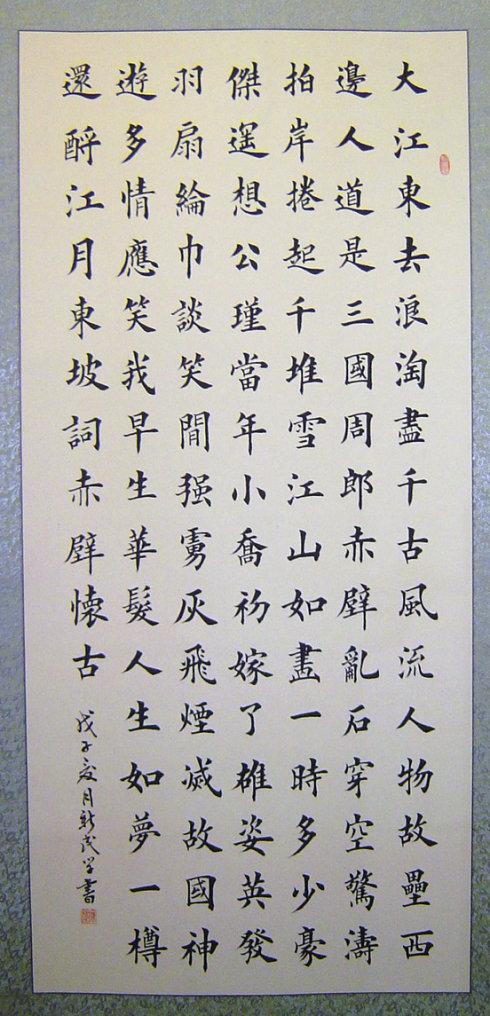 大江東去浪淘盡千古風流人物故壘西
邊人道是三國周郎赤壁亂石穿空驚濤
拍岸捲起千堆雪江山如畫一時多少豪
傑遥想公瑾當年小喬初嫁了雄姿英發
羽扇綸巾談笑間强虜灰飛煙滅故國神
遊多情應笑我早生華髮人生如夢一樽
還酹江月東坡詞赤壁懷古
戊子夏月新民學書